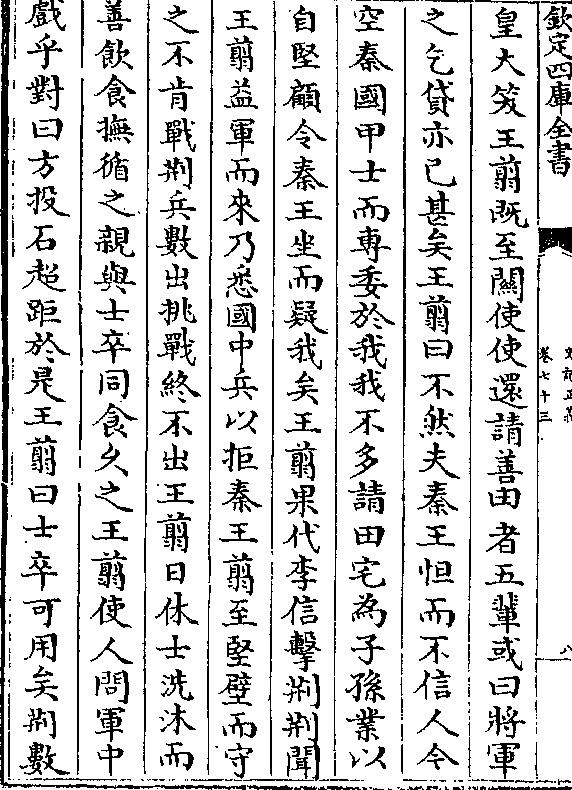 欽定四庫全書
史記正義
卷七十三
八
皇大笑王翦既至關使使還請善田者五輩或曰將軍
之乞貸亦已甚矣王翦曰不然夫秦王怚而不信人今
空秦國甲士而專委於我我不多請田宅為子孫業以
自堅顧令秦王坐而疑我矣王翦果代李信擊荆荆聞
王翦益軍而來乃悉國中兵以拒秦王翦至堅壁而守
之不肯戰荆兵數出挑戰終不出王翦日休士洗沐而
善飲食撫循之親與士卒同食久之王翦使人問軍中
戲乎對曰方投石超距於是王翦曰士卒可用矣荆數